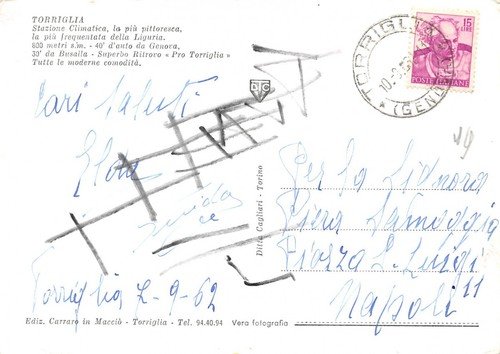 TORRIGLIA
Stazione Climatica, la più pittoresca,
la più frequentata della Liguria.
800 metri s/m. - 40' d'auto da Genova,
30' da Busalla - Superbo Ritrovo « Pro Torriglia »
Tutte le moderne comodità.
15
LIRE
POSTE ITALIANE
TORRIGLIA
(GENOVA)
DCT
Cari Saluti
Per la Signora
Piera Samoggia
Piazza S. Luigi
11
Napoli
Torriglia 7-9-62
Ditta Cagliari - Torino
Ediz. Carraro in Macciò - Torriglia - Tel. 94.40.94
Vera fotografia